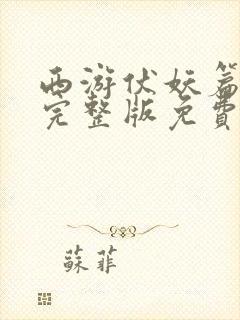 西游伏妖篇
完整版免費
蘇菲